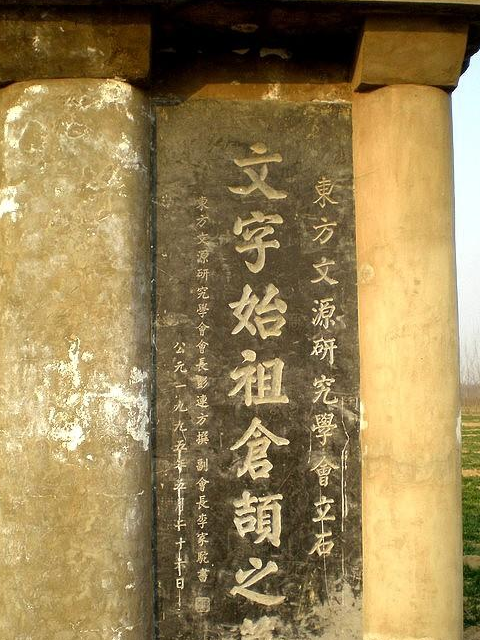 東方文源研究學會立石
文字始祖倉頡之
東方文源研究學會會長彭連方撰 副會長李家駝書
公元一九九五年五月二十六日